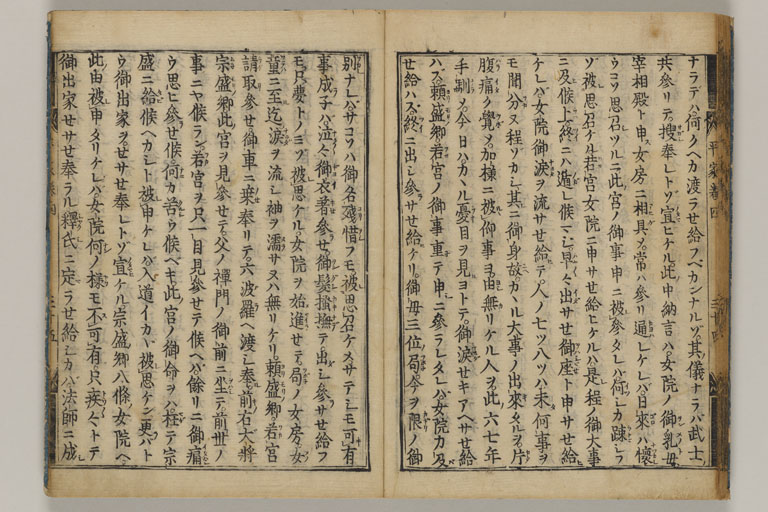 ナラデハ何クヘカ渡ラセ給フベカンナルゾ其儀ナラバ武士
共參リテ搜奉レトゾ宜ヒケル此中納言ハ女院ノ御乳母
宰相殿ト申ス女房ニ相具メ常ハ參リ通レケレバ日來ハ懷
ウコソ思召ツルニ此宮ノ御事申ニ被參タレハ何レカ踈レフ
ゾ被思召ケル若宮女院ニ申サセ給ヒケルハ是程ノ御大事
ニ及候上終ニハ遁レ候マシ早々出サセ御座ト申サセ給
ケレバ女院御淚ヲ流サセ給テ人ノ七ツ八ツハ未何事ヲ
モ聞分ヌ程ソカシ其ニ御身故カヽル大事ノ出來タルヲ片
腹痛ク覺メ加樣ニ被仰事ヲ由無リケル人ヲ此六七年
手馴メ今日ハカヽル憂目ヲ見ヨトテ御淚セキアヘサセ給
ハス賴盛卿若宮ノ御事重テ申ニ參ラレタレハ女院力及
セ給ハス終ニ出シ參サセ給ケリ御母三位局今ヲ限ノ御
別ナレハサコソハ御名殘惜フモ被思召ケメサテシモ可有
事成子ハ泣々御衣着參セ御髮搔撫テ出シ參サセ給フ
モ只夢トノミゾ被思ケル女院ヲ始進セテ局ノ女房女
童ニ至迄淚ヲ流シ袖ヲ濡サヌハ無リケリ賴盛卿若宮
請取參セ御車ニ乘奉リテ六波羅ヘ渡シ奉前右大將
宗盛卿此宮ヲ見參セテ父ノ禪門ノ御前ニ坐テ前世ノ
事ニヤ候ラン若宮ヲ只一目見參セテ候ヘバ餘リニ御痛
ウ思ヒ參セ候何カ苦ウ候ベキ此宮ノ御命ヲハ枉テ宗
盛ニ給候ヘカシト被申ケレハ入道イカヾ被思ケン更バト
ウ御出家ヲセサセ奉レトゾ宜ケル宗盛卿八條女院ヘ
此由被申タリケレハ女院何ノ樣モ不可有只疾々トテ
御出家セサセ奉ラル釋氏ニ定ラセ給シカバ法師ニ成
平家卷四
三十四